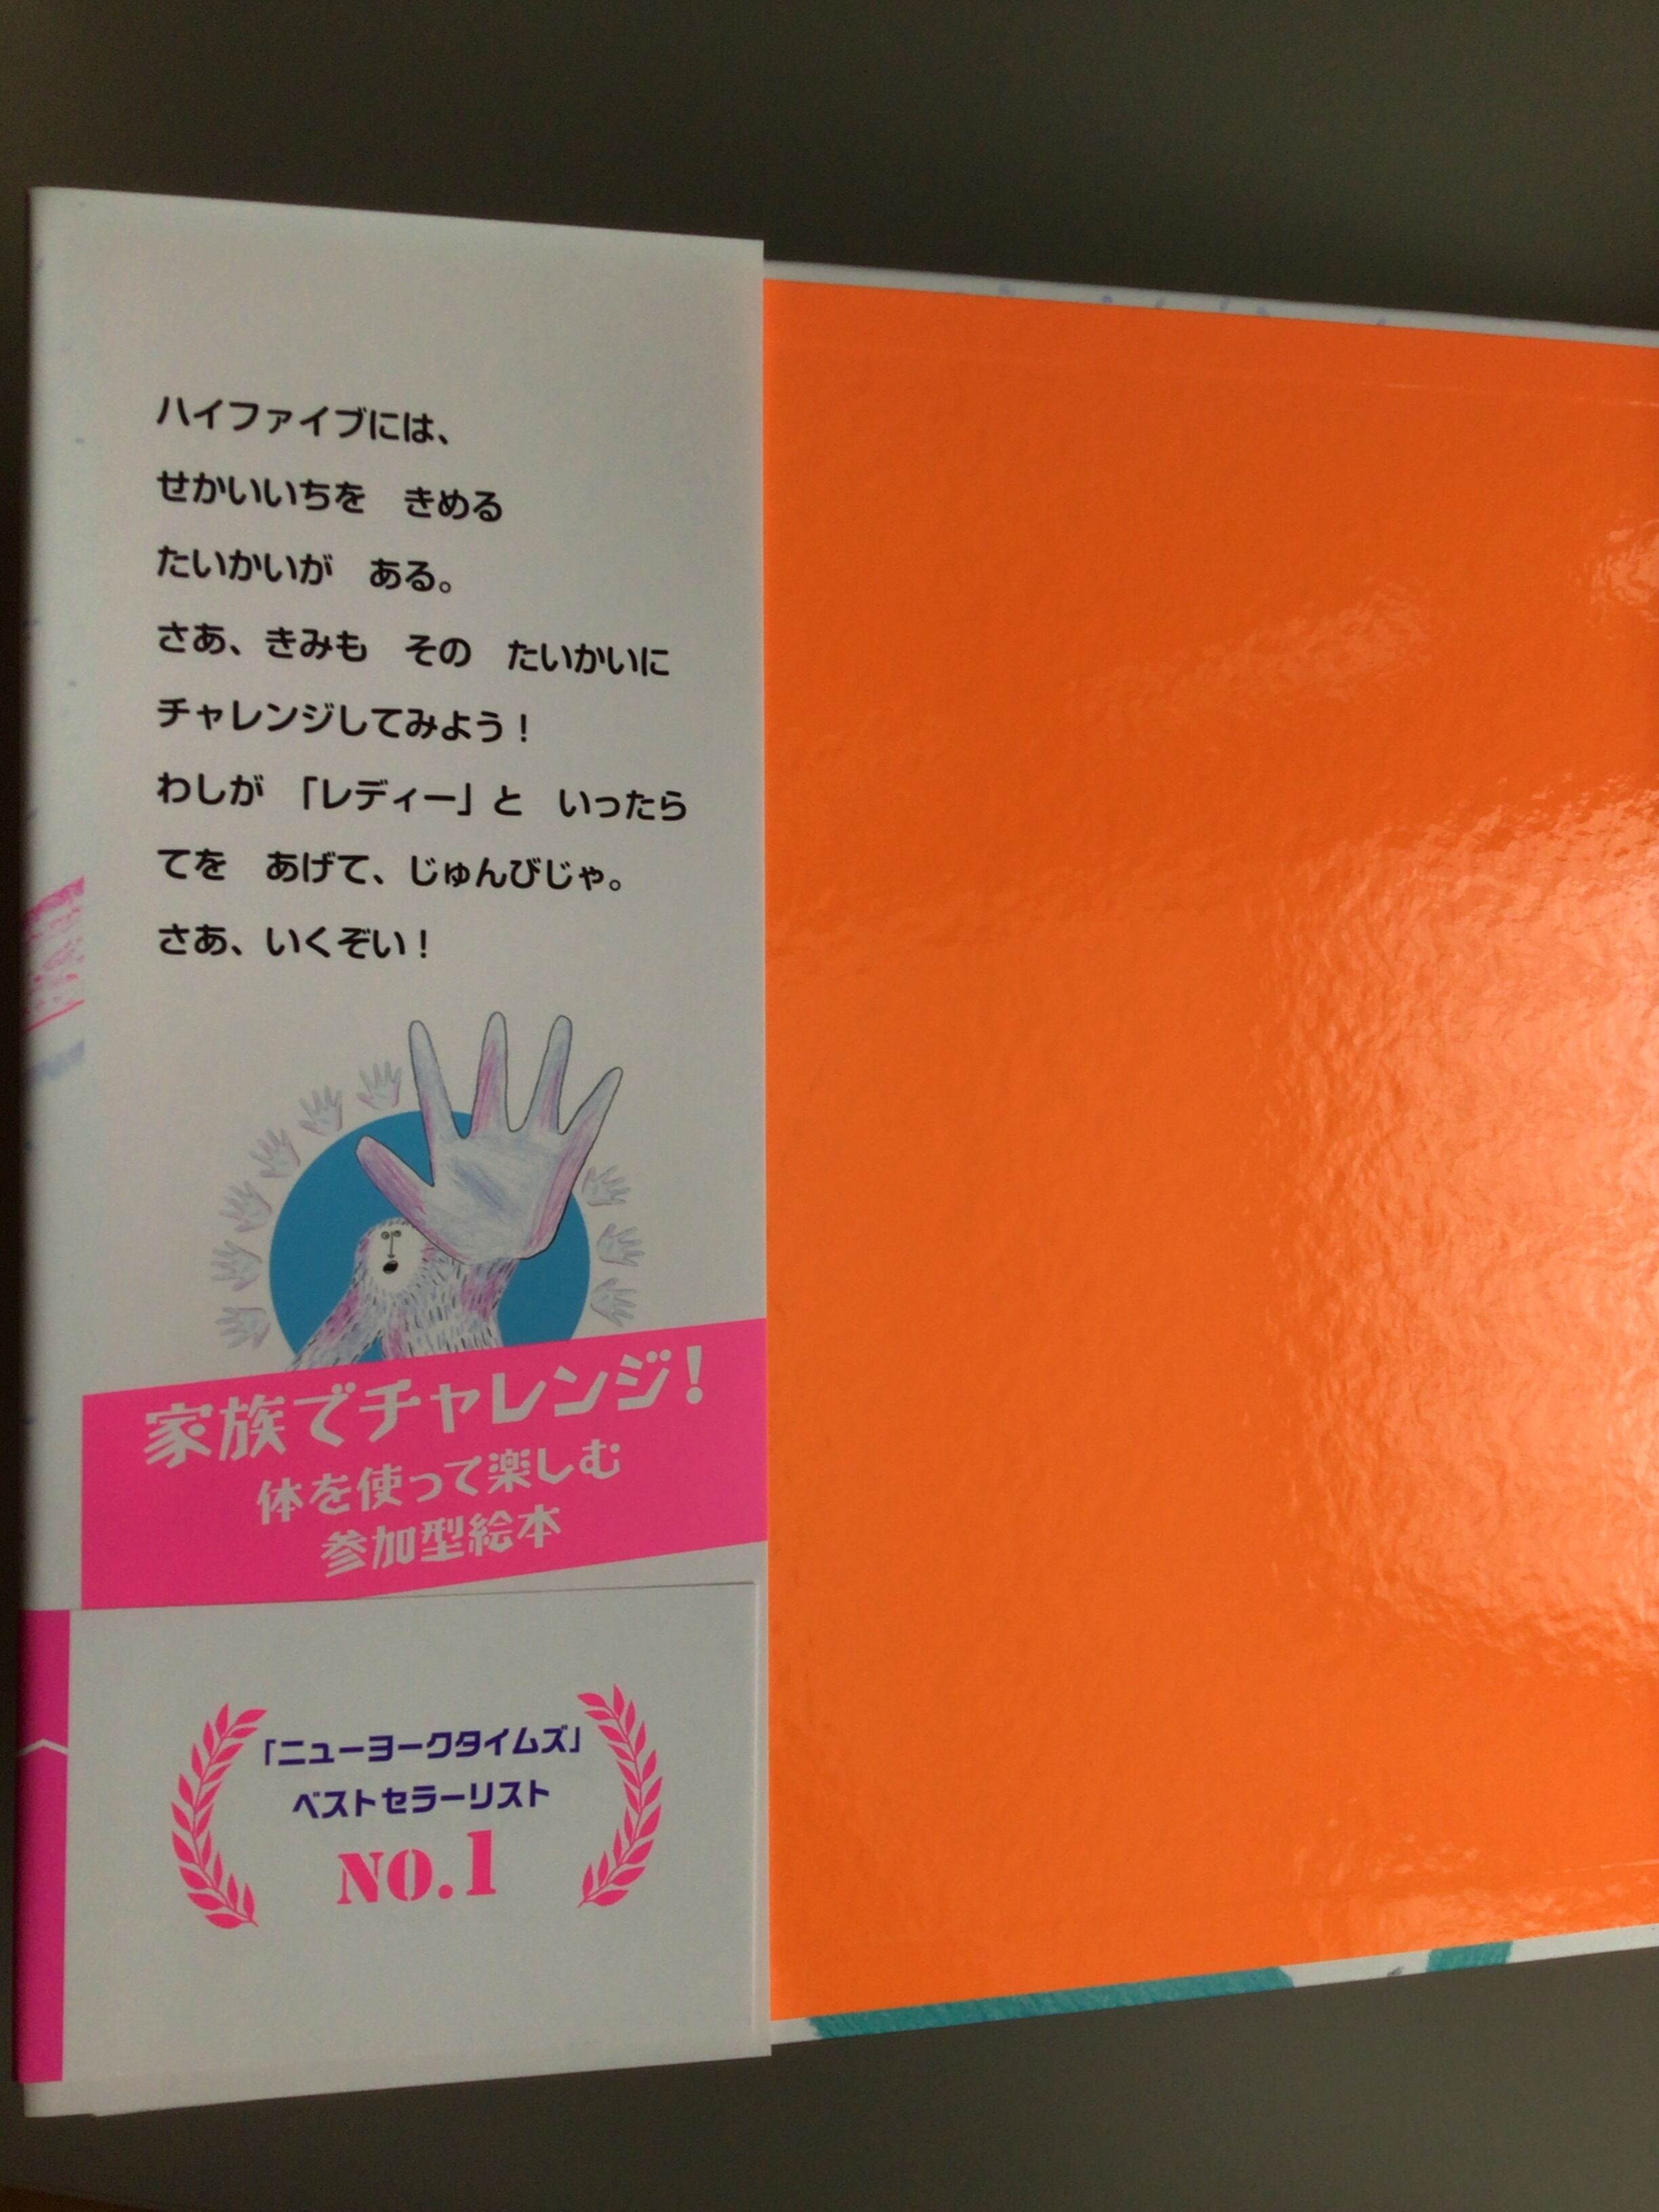 ハイファイブには、
せかいいちを　きめる
たいかいが　ある。
さあ、きみも　その　たいかいに
チャレンジしてみよう！
わしが　「レディー」と　いったら
てを　あげて、じゅんびじゃ。
さあ、いくぞい！
家族でチャレンジ！
体を使って楽しむ
参加型絵本
「ニューヨークタイムズ」
ベストセラーリスト
NO.1